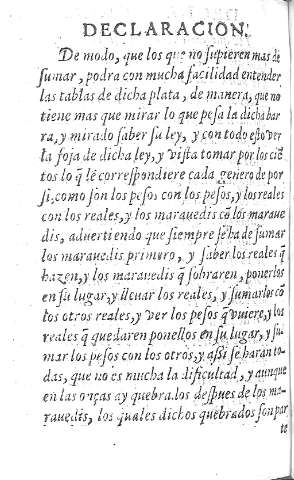 DECLARACION.
De modo, que los que no supieren mas de
sumar, podra con mucha facilidad entender
las tablas de dicha plata, de manera, que no
tiene mas que mirar lo que pesa la dicha bar
ra, y mirado saber su ley, y con todo esto ver
la foja de dicha ley, y vista tomar por los ciē
tos lo q̄ lē correspondiere cada genero de por
si, como son los pesos con los pesos, y los reales
con los reales, y los marauedis cō los maraue
dis, aduertiendo que siempre se ha de sumar
los marauedis primero, y saber los reales q̄
hazen, y los marauedis q̄ sobraren, ponerlos
en su lugar, y lleuar los reales, y sumarlos cō
los otros reales, y ver los pesos q̄ vuiere, y los
reales q̄ quedaren ponellos en su lugar, y su
mar los pesos con los otros, y assi se haran to-
das, que no es mucha la dificultad, y aunque
en las onças ay quebrados despues de los ma-
rauedis, los quales dichos quebrados son par
te